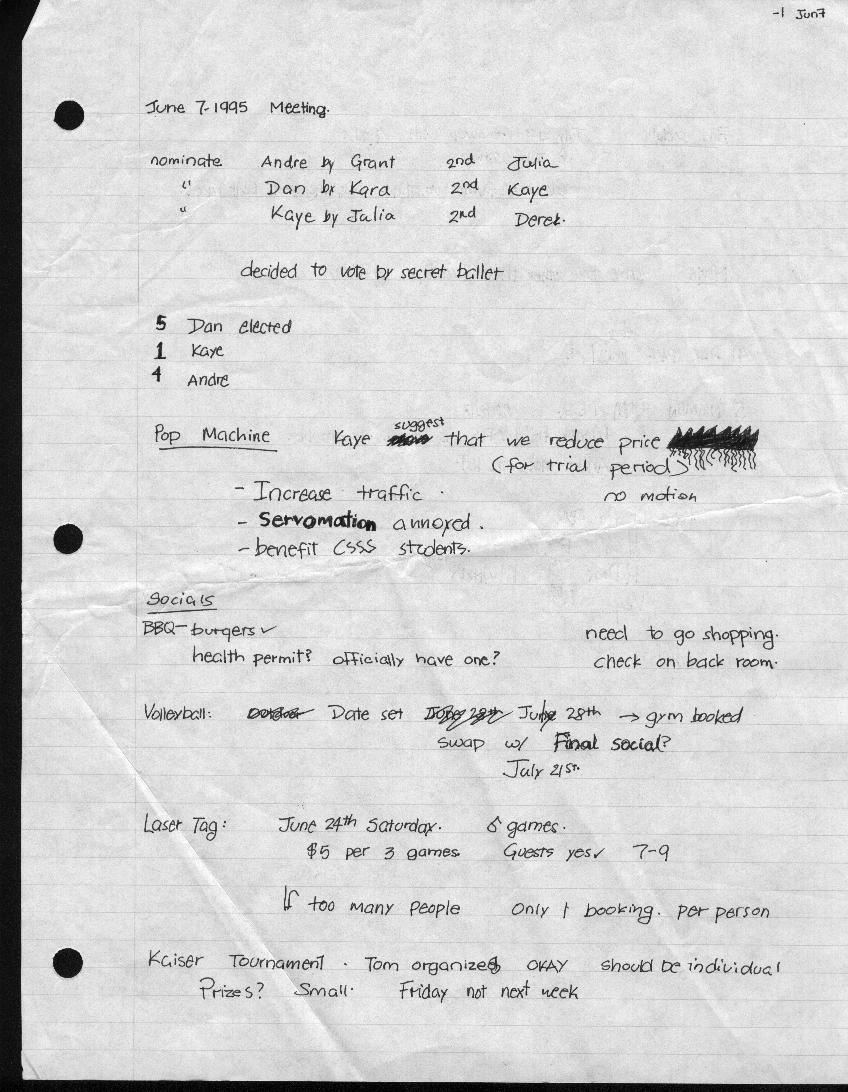 -1 Jun7
June 7-1995 Meeting.
nominate Andre by Grant 2nd Julia
" Dan by Kara 2nd Kaye
" Kaye by Julia 2nd Derek.
decided to vote by secret ballet
5 Dan elected
1 Kaye
4 Andre
Pop Machine Kaye suggest that we reduce price
(for trial period)
- Increase traffic. no motion
- Servomation annoyed.
- benefit CSSS students.
Socials
BBQ- burgers ✓ need to go shopping.
health permit? officially have one? check on back room.
Volleyball: Date set 28th → gym booked
swap w/ Final social?
July 21st.
Laser Tag: June 24th Saturday. games.
$5 per 3 games. Guests yes ✓ 7-9
If too many people Only 1 booking. per person
Kaiser Tournament. Tom organizes OKAY should be individual
Prizes? Small. Friday not next week